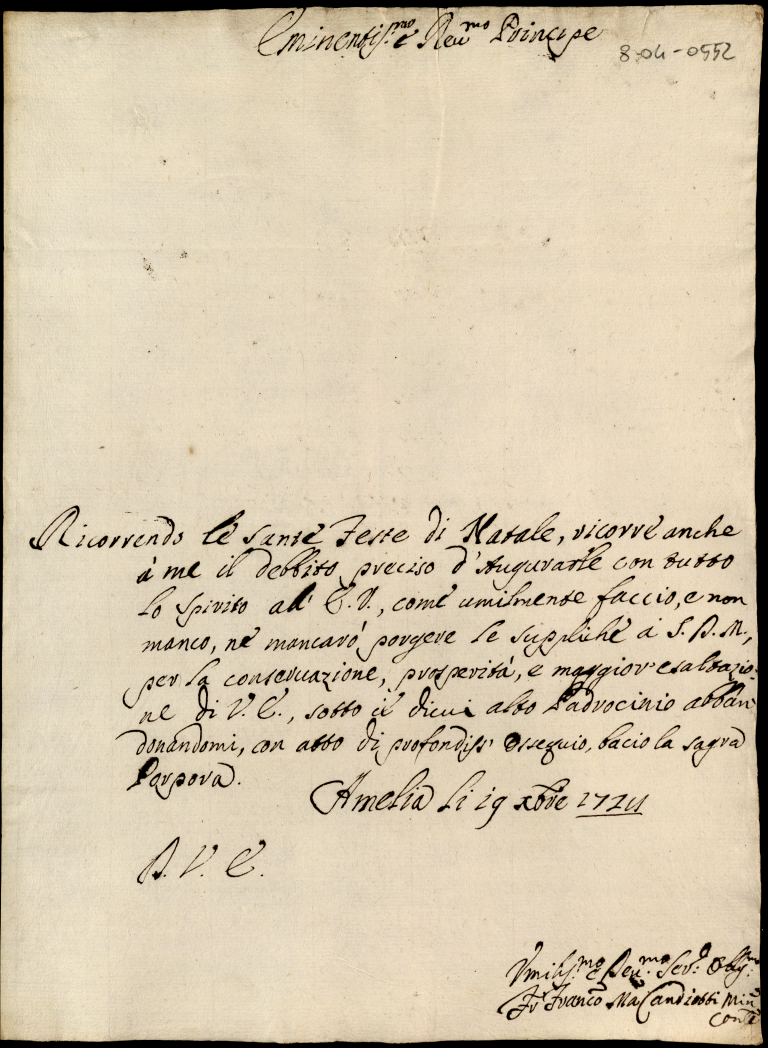 Eminentis.mo e Reu.mo Principe
8-04-0552
Ricorrendo le sante Feste di Natale, ricorre anche
à me il debbito preciso d'Augurarle con tutto
lo spirito all' E.V., come umilmente faccio, e non
manco, ne mancarò porgere le suppliche à S.D.M.,
per la conseruazione, prosperità, e maggior esaltazio-
ne di V.E., sotto il dicui alto Padrocinio abban
donandomi, con atto di profondiss.o osseguio, bacio la sagra
Porpora.
Amelia li 19 xbre
D. V. E.
Vmilis.mo e Deu.mo Ser.e Oblig.mo
Fr Franco Ma Candiotti Min
Conle